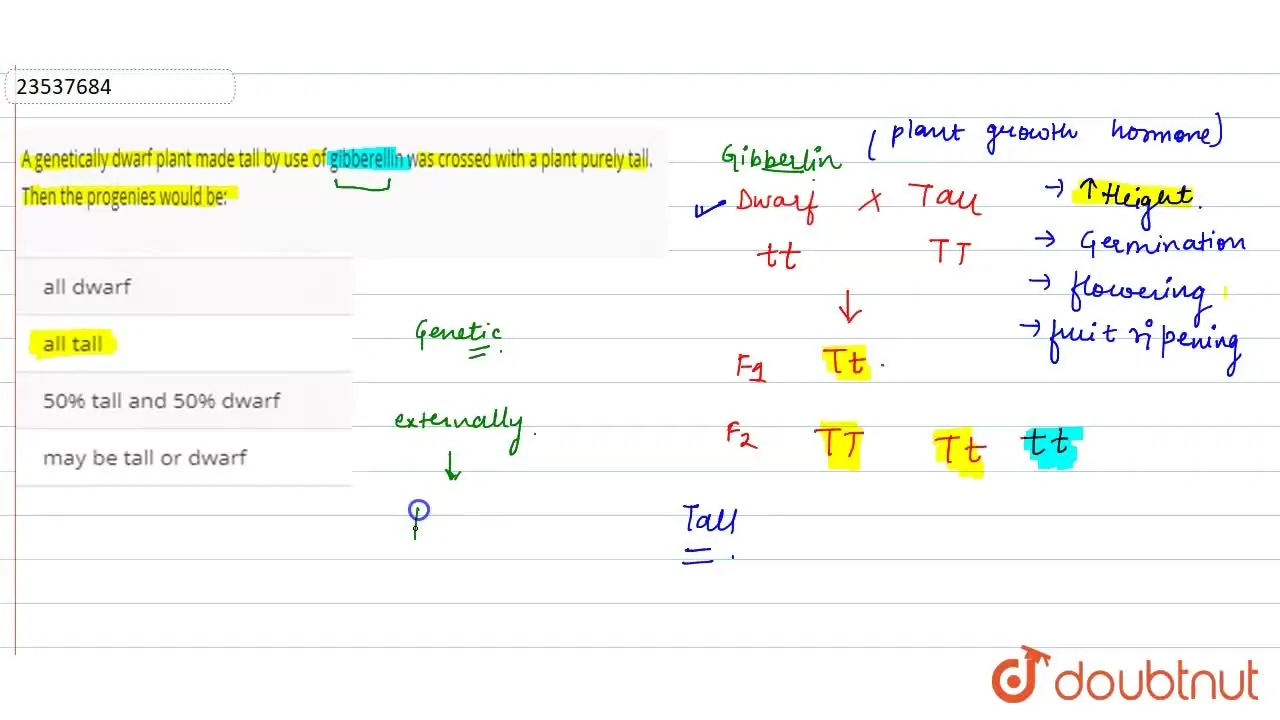 23537684
A genetically dwarf plant made tall by use of gibberellin was crossed with a plant purely tall.
Then the progenies would be:
all dwarf
all tall
50% tall and 50% dwarf
may be tall or dwarf
Genetic
externally.
(plant growth hormone)
Gibberlin
Dwarf x Tall
tt TT
→ ↑ Height.
→ Germination
→ flowering
→ fruit ripening
↓
F1 Tt.
F2 TT Tt tt
Tall
doubtnut